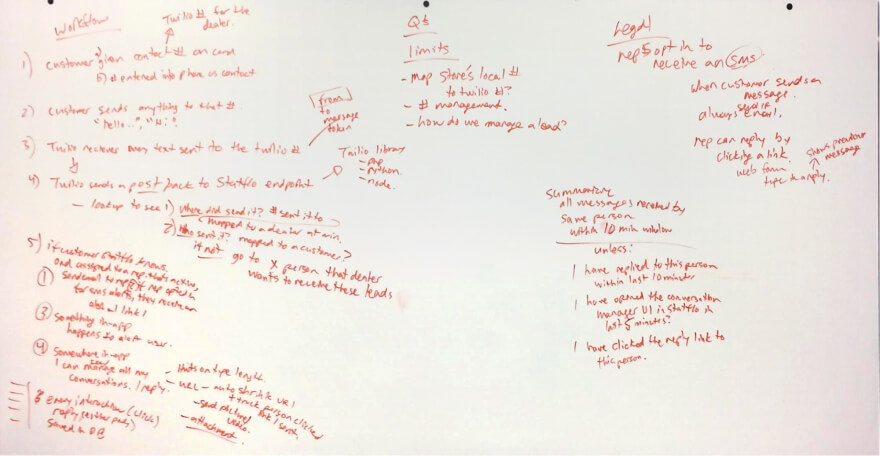 Workflow
Twilio # for the
dealer.
1) Customer given contact # on card
# entered into phone as contact
2) Customer sends anything to that #.
"Hello..", "Hi".
3) Twilio receives any text sent to the twilio #
4) Twilio sends a post back to Statflo endpoint
- lookup to see 1) where did send it? # sent it to
mapped to a dealer at min.
2) Who sent it? mapped to a customer?
if not go to X person that dealer
wants to receive these leads
to
message
token
Twilio library
- php
- python.
- node.
5) if customer statflo knows
and assigned to a rep. that's active,
1) send email to rep if rep opted in
for sms alerts, they receive an
link!
3) something in-app
happens to alert user.
4) Somewhere in-app
I can manage all my
conversations. / reply.
- limits on type length.
- URL - auto shrink URL
+ track person clicked
link I sent.
- send picture/
video.
- attachment.
& every interaction (click)
reply, (either party)
saved in DB
Q's
limits
- map store's local #
to twilio #?
- # management.
- how do we manage a lead?
Legal
reps opt in to
receive an SMS
when customer sends a
message.
always send a email.
rep can reply by
clicking a link.
web form
type in a reply.
shows previous
message
Summarize
all messages received by
same person
within 10 min window
unless:
I have replied to this person
within last 10 minutes
I have opened the conversation
manager UI in Statflo in
last 5 minutes?
I have clicked the reply link to
this person.